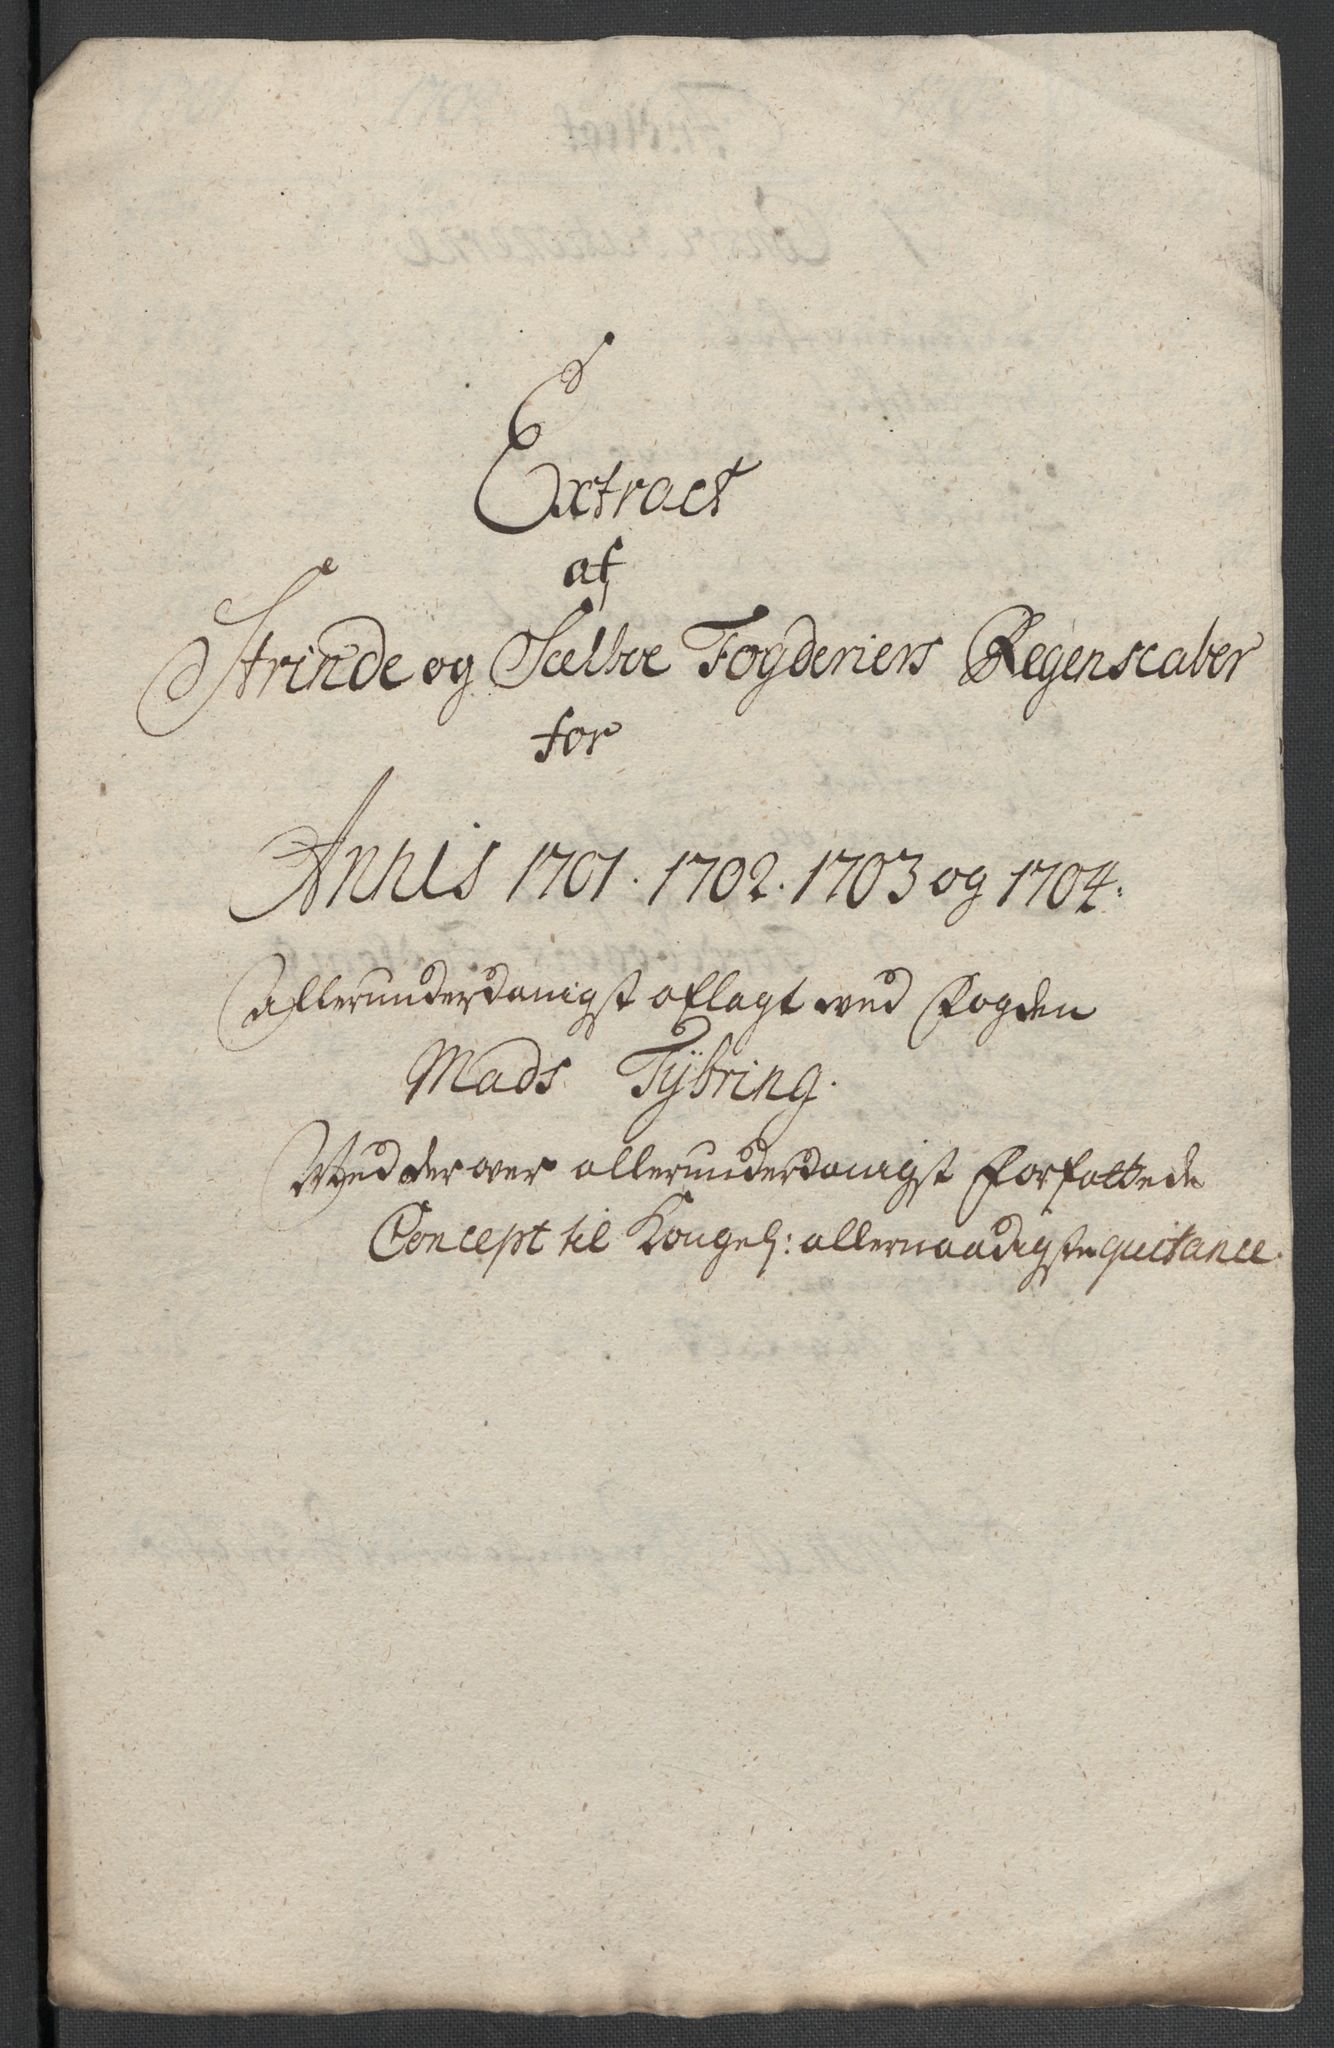 Extract
af
Strinde og Selboe Fogderiers Regenscaber
for
Annis 1701. 1702. 1703 og 1704.
Allerunderdanigst aflagt ved Fogden
Mads Tÿbring.
Med der over allerunderdanigst forfattede
Concept til Kongel: allernaadigste quitance.